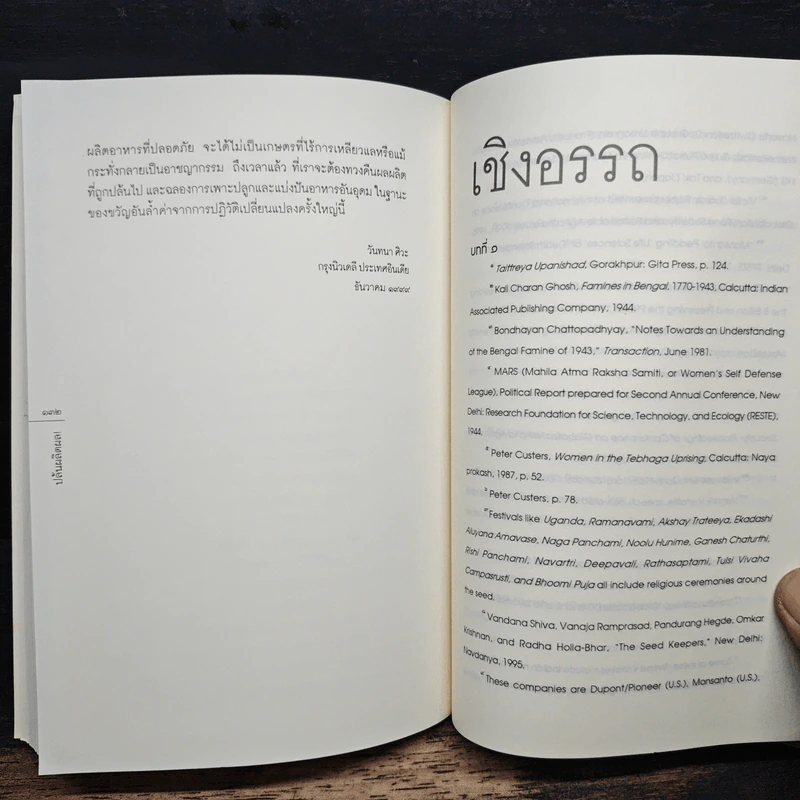 ผลิตอาหารที่ปลอดภัย จะได้ไม่เป็นเกษตรที่ไร้การเหลียวแลหรือแม้
กระทั่งกลายเป็นอาชญากรรม ถึงเวลาแล้ว ที่เราจะต้องทวงคืนผลผลิต
ที่ถูกปล้นไป และฉลองการเพาะปลูกและแบ่งปันอาหารอันอุดม ในฐานะ
ของขวัญอันล้ำค่าจากการปฏิวัติเปลี่ยนแปลงครั้งใหญ่นี้
วันทนา ศิวะ
กรุงนิวเดลี ประเทศอินเดีย
ธันวาคม ๑๙๙๙
๑๓๒
ปล้นผลิตผล!
เชิงอรรถ
บทที่ ๑
๑ Taittreya Upanishad, Gorakhpur: Gita Press, p. 124.
๒ Kali Charan Ghosh, Famines in Bengal, 1770-1943, Calcutta: Indian
Associated Publishing Company, 1944.
๓ Bondhayan Chattopadhyay, "Notes Towards an Understanding
of the Bengal Famine of 1943," Transaction, June 1981.
๔ MARS (Mahila Atma Raksha Samiti, or Women's Self Defense
League), Political Report prepared for Second Annual Conference, New
Delhi: Research Foundation for Science, Technology, and Ecology (RESTE),
1944.
๕ Peter Custers, Women in the Tebhaga Uprising, Calcutta: Naya
prokash, 1987, p. 52.
๖ Peter Custers, p. 78.
๗ Festivals like Uganda, Ramanavami, Akshay Trateeya, Ekadashi
Aluyana Amavase, Naga Panchami, Noolu Hunime, Ganesh Chaturthi,
Rishi Panchami, Navartri, Deepavali, Rathasaptami, Tulsi Vivaha
Campasrusti, and Bhoomi Puja all include religious ceremonies around
the seed.
๘ Vandana Shiva, Vanaja Ramprasad, Pandurang Hegde, Omkar
Krishnan, and Radha Holla-Bhar, "The Seed Keepers," New Delhi:
Navdanya, 1995.
๙ These companies are Dupont/Pioneer (U.S.), Monsanto (U.S.),